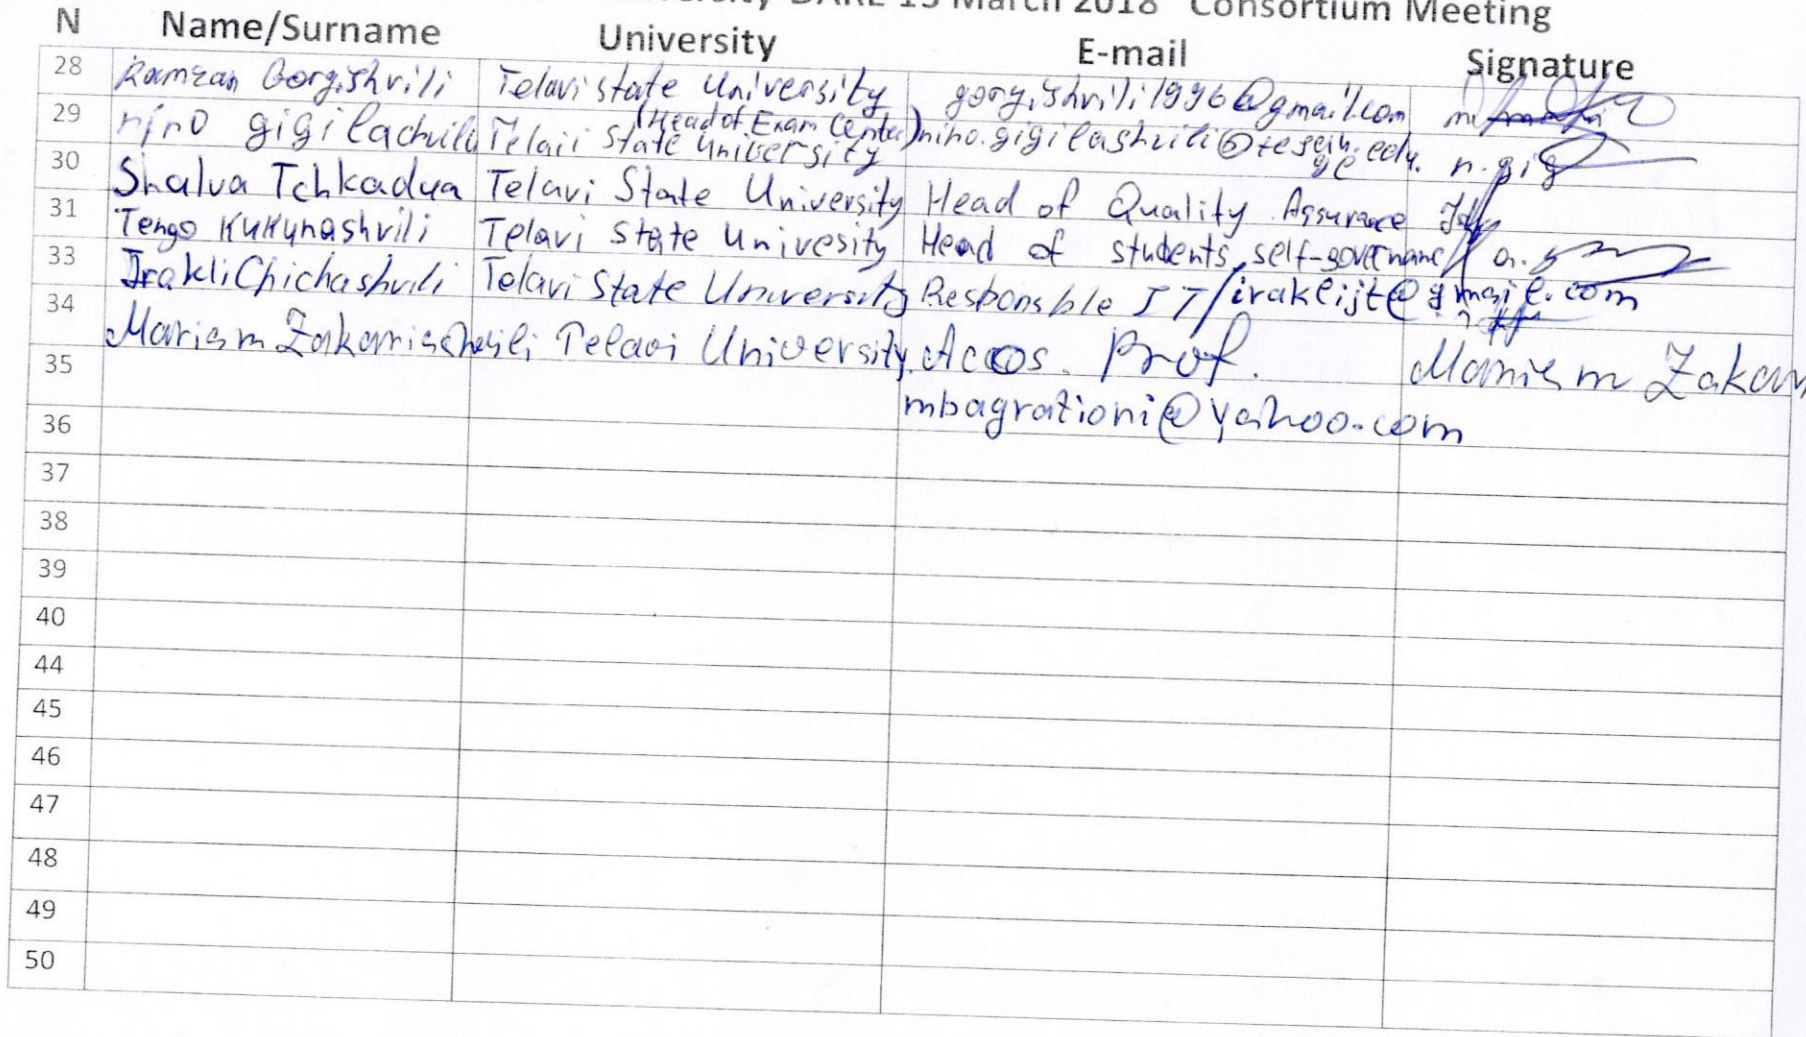 DARE 15 March 2018 Consortium Meeting
N Name/Surname University E-mail Signature
28 Ramzan Gorgishvili Telavi state University gorgishvili1996@gmail.com
29 nino gigilachvili Telavi State University (Head of Exam Center) nino.gigilashvili@tesau.edu.ge n.gig
30 Shalva Tchkadua Telavi State University Head of Quality Assurance
31 Tengo Kukunashvili Telavi State Univesity Head of students self-governanc
33 Irakli Chichashvili Telavi State University Responsble IT/iraklijt@gmail.com
34 Mariam Zakariashvili Telavi University Acos. Prof. Mariam Zakar
35 mbagrationi@yahoo.com
36
37
38
39
40
44
45
46
47
48
49
50